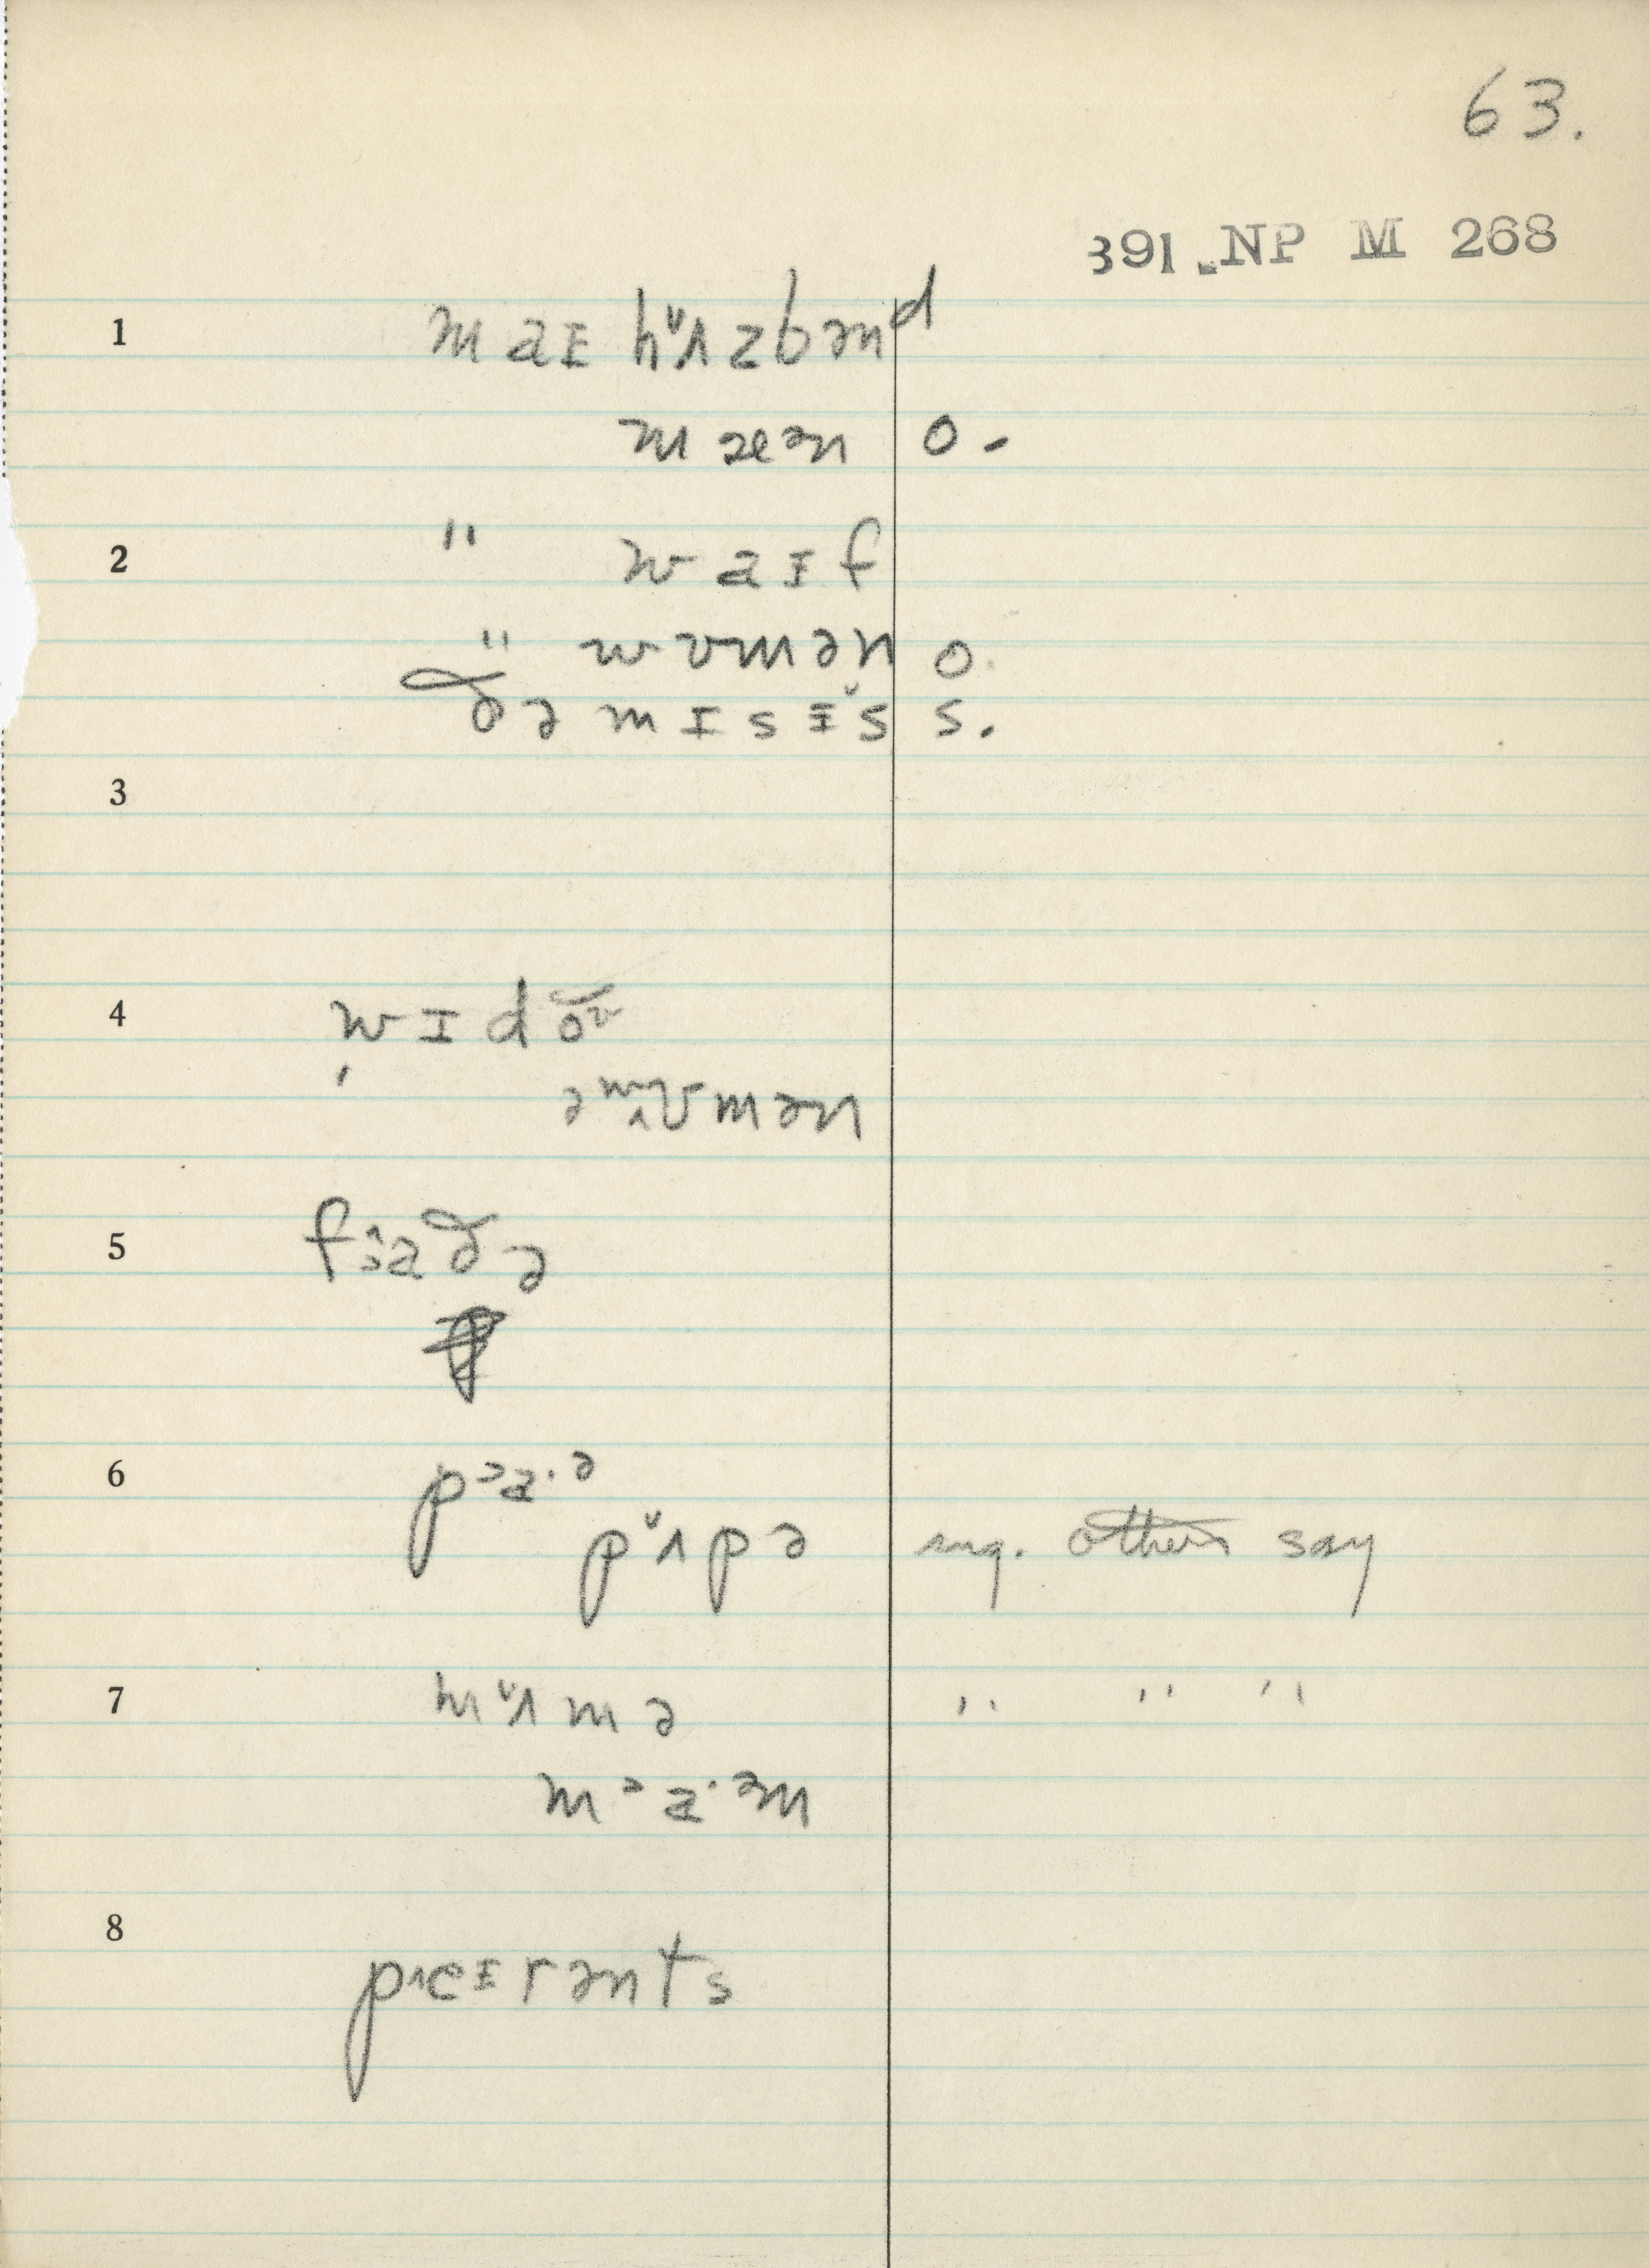 63.
391 NP M 268
1 m a ɪ h ʌ̌ z b ə n ᵈ
m æ ə n o.
2 " w a ɪ f
" w ʊ m ə n o.
ð ə m ɪ s ɪ̌ s s.
3
4 w ɪ d o ᶷ
ə ʷ ʊ m ə n
5 f ɔ a ð ə
6 p ᵓ a · ᵊ
p ʌ̌ p ə sug. others say
7 m ʌ̌ m ə " " "
m ᵓ a · ᵊ m
8
p e ɪ r ə n t s